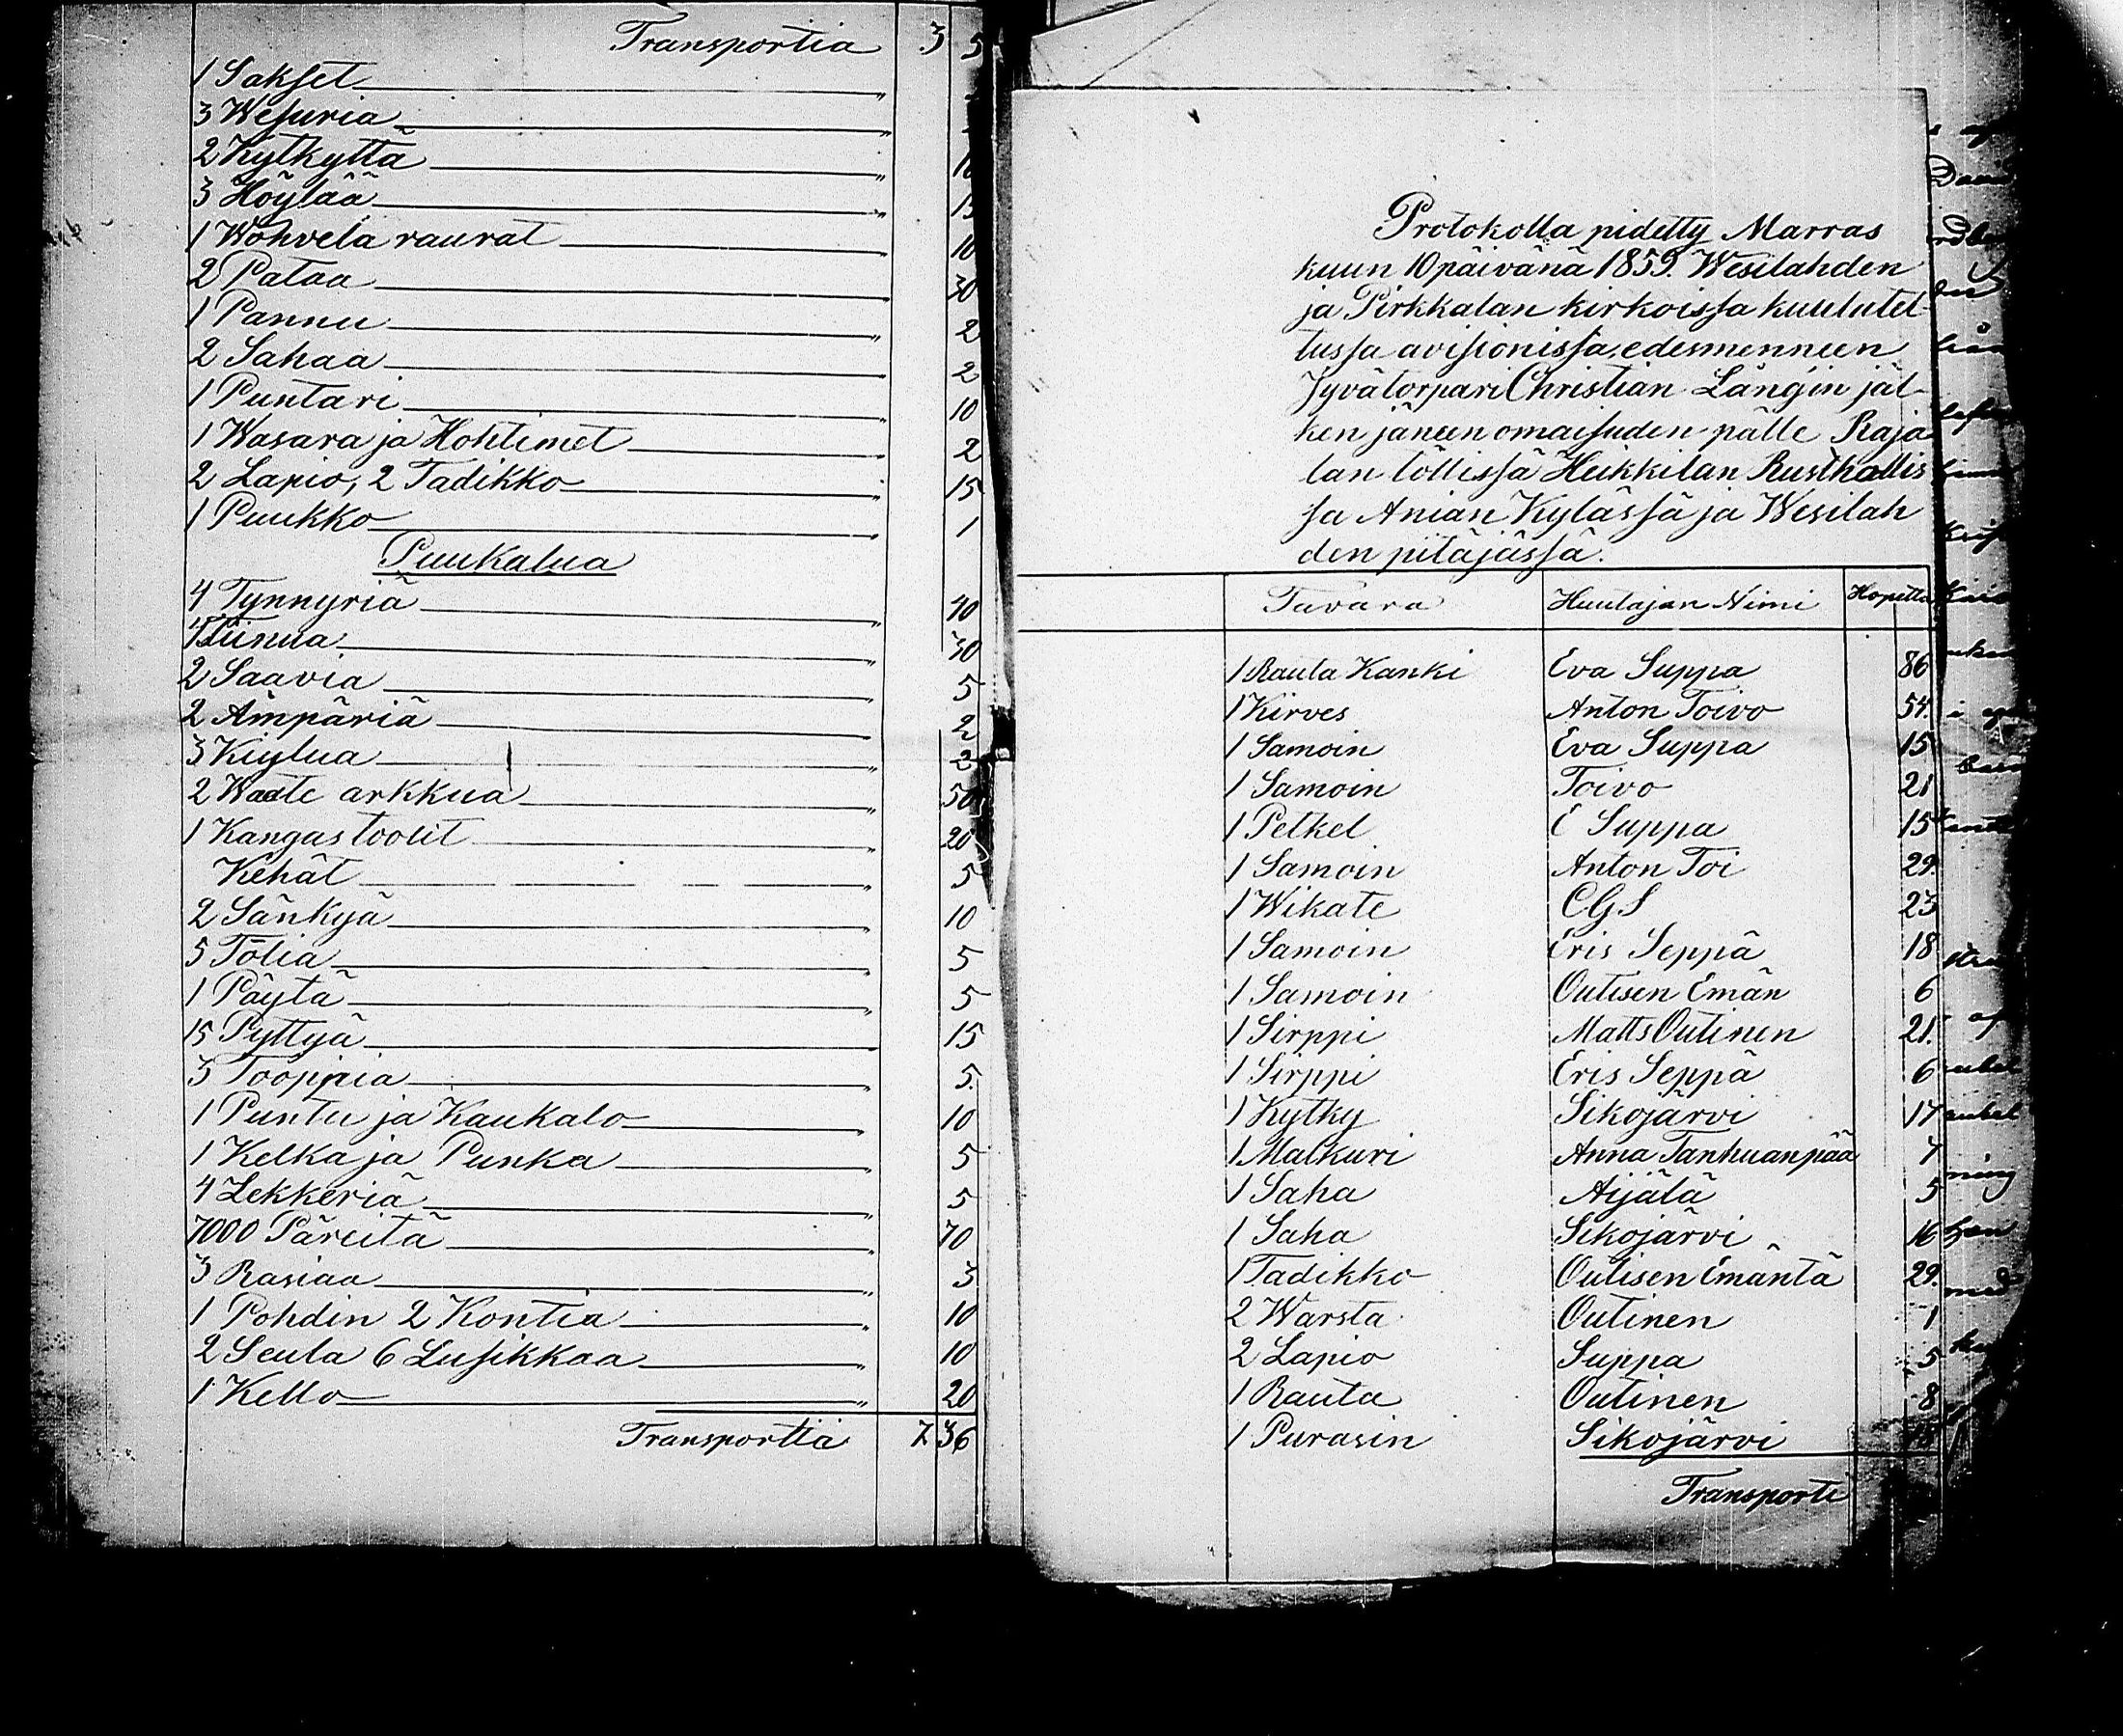 Transportia 3 5
1 Sakset "
3 Wesuria "
2 Kytkyttä "
3 Höylää "
1 Wohvela raurat " 10
2 Pataa " 30
1 Pannu " 2
2 Sahaa " 2
1 Puntari " 10
1 Wasara ja Hohtimet " 2
2 Lapio, 2 Tadikko " 15
1 Puukko " 1
Puukalua
4 Tynnyriä " 40
Tiinua "
2 Saavia " 5
2 Ämpäriä " 2
3 Kiylua " 2
2 Waate arkkua " 50
1 Kangas toolit " 20
Kehät " 5
2 Sänkyä " 10
5 Tölia " 5
1 Päytä " 5
15 Pyttyä " 15
3 Tooppia " 5.
1 Puntu ja Kaukalo " 10
1 Kelka ja Punka " 5
4 Lekkeriä " 5
7000 Päreitä " 70
3 Rasiaa " 3
1 Pohdin 2 Kontia " 10
2 Seula 6 Lusikkaa " 10
1 Kello " 20
Transportia 7 36
Protokolla pidetty Marras
kuun 10 päivänä 1859. Wesilahden
ja Pirkkalan kirkoissa kuulutet-
tussa avisionissa, edesmenneen
Jyvätorpari Christian Långin jäl-
ken jäneen omaisuden pälle Raja
lan töllissä Heikkilan Rusthollis
sa Anian Kylässä ja Wesilah
den pitäjässä.
Tavara Huutajan Nimi Hopeitta
1 Rauta Kanki Eva Suppa 86
1 Kirves Anton Toivo 54.
1 Samoin Eva Suppa 15
1 Samoin Toivo 21
1 Petkel E Suppa 15
1 Samoin Anton Toi 29.
1 Wikate C.G.S 23
1 Samoin Eris Seppä 18
1 Samoin Outisen Emän 6
1 Sirppi Matts Outinen 21.
1 Sirppi Eris Seppä 6
1 Kytky Sikojärvi 17
1 Malkuri Anna Tanhuanpää 7
1 Saha Aijälä 5
1 Saha Sikojärvi 16
1 Tadikko Outisen Emäntä 29.
2 Warsta Outinen 1
2 Lapio Suppa 5
1 Rauta Outinen 8
1 Purasin Sikojärvi
Transporti